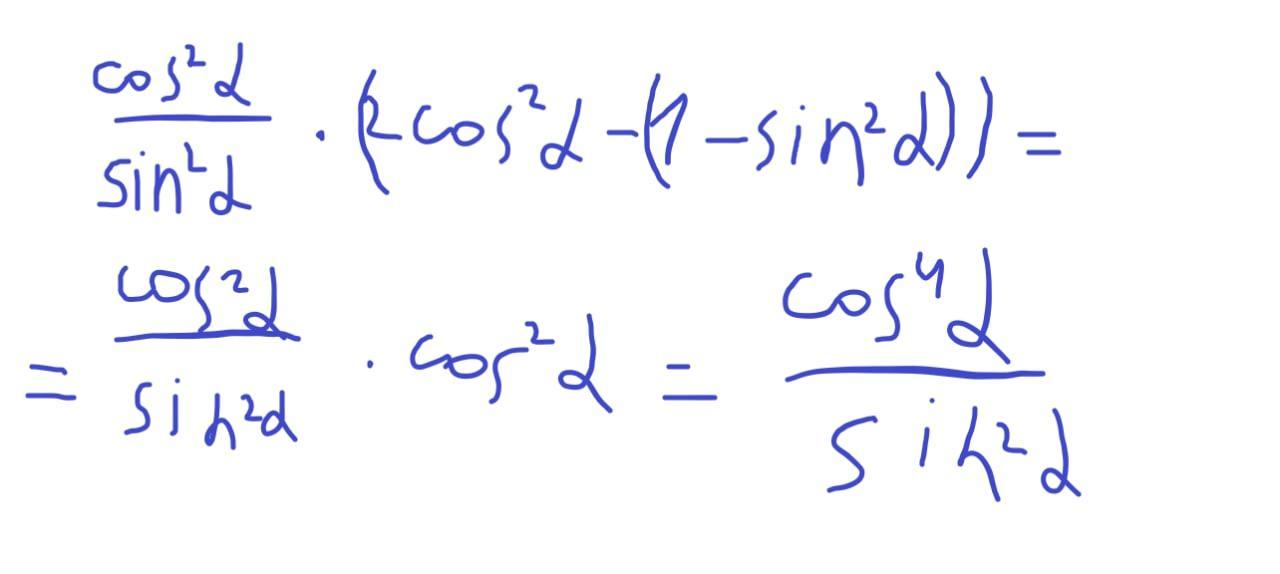 cos²α/sin²α · (2cos²α-(1-sin²α))=
= cos²α/sin²α · cos²α = cos⁴α/sin²α